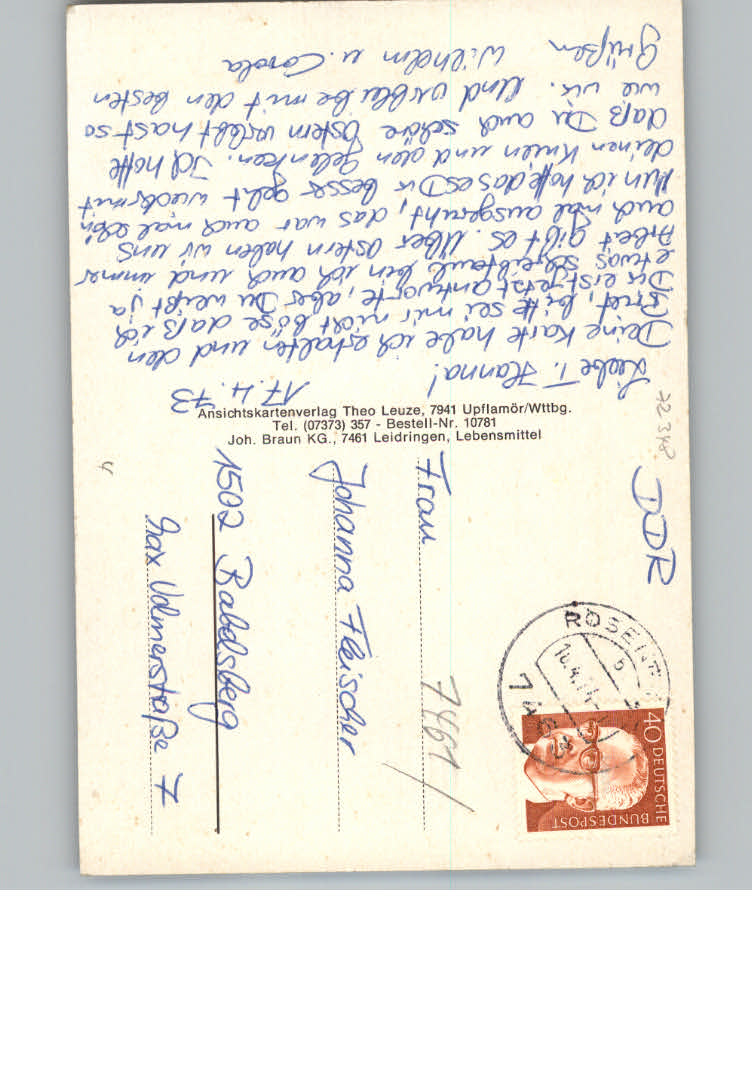 17.4.73
Liebe T. Hanna!
Deine Karte habe ich erhalten und den
Brief, bitte sei mir nicht böse daß ich
Dir erst jetzt antworte, aber Du weißt ja
etwas schreibfaul bin ich auch und immer
Arbeit gibt es. Über Ostern haben wir uns
auch mal ausgeruht, das war auch mal schön
Nun ich hoffe das es Dir besser geht wieder mit
deinen Knien und den Gelenken. Ich hoffe
daß Du auch schöne Ostern verlebt hast so
wie wir. Und verbleibe mit den besten
Grüßen Wilhelm u. Carola
Ansichtskartenverlag Theo Leuze, 7941 Upflamör/Wttbg.
Tel. (07373) 357 - Bestell-Nr. 10781
Joh. Braun KG., 7461 Leidringen, Lebensmittel
72348
DDR
Frau
Johanna Fleischer
1502 Babelsberg
Max Volmerstaße 7
7461
40 DEUTSCHE
BUNDESPOST